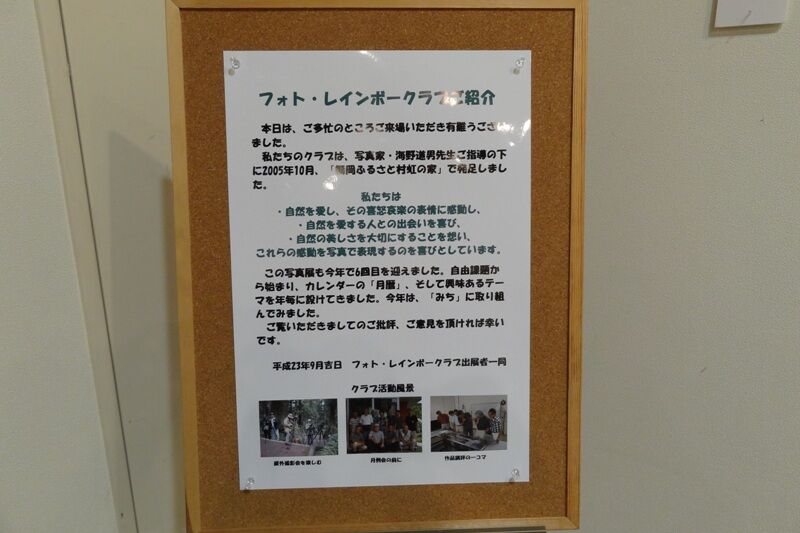 フォト・レインボークラブご紹介
本日は、ご多忙のところご来場いただき有難うござい
ました。
私たちのクラブは、写真家・海野道男先生ご指導の下
に2005年10月、「鶴岡ふるさと村虹の家」で発足しまし
た。
私たちは
・自然を愛し、その喜怒哀楽の表情に感動し、
・自然を愛する人との出会いを喜び、
・自然の美しさを大切にすることを想い、
これらの感動を写真で表現するのを喜びとしています。
この写真展も今年で6回目を迎えました。自由課題か
ら始まり、カレンダーの「月暦」、そして興味あるテー
マを年毎に設けてきました。今年は、「みち」に取り組
んでみました。
ご覧いただきましてのご批評、ご意見を頂ければ幸い
です。
平成23年9月吉日　フォト・レインボークラブ出展者一同
クラブ活動風景
野外撮影会を楽しむ
月例会の前に
作品講評の一コマ